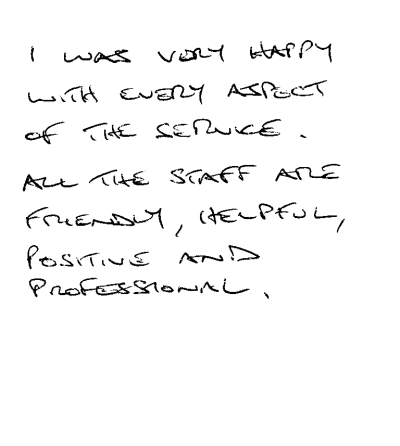 I WAS VERY HAPPY
WITH EVERY ASPECT
OF THE SERVICE.
ALL THE STAFF ARE
FRIENDLY, HELPFUL,
POSITIVE AND
PROFESSIONAL.